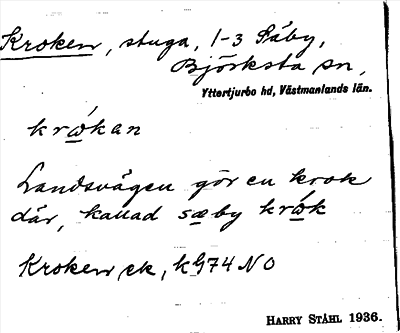 Kroken, stuga, 1-3 Säby,
Björksta sn,
Yttertjurbo hd, Västmanlands län.
krωkan
Landsvägen gör en krok
där, kallad sæby krωk
Kroken, ek, kG74 NO
HARRY STÅHL 1936.